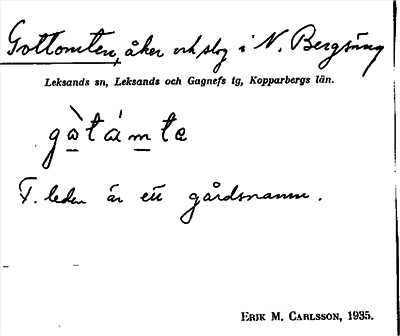 Gottomten, åker och slog i N. Bergsäng
Leksands sn, Leksands och Gagnefs tg, Kopparbergs län.
gòtámte
F. leden är ett gårdsnamn.
ERIK M. CARLSSON, 1935.